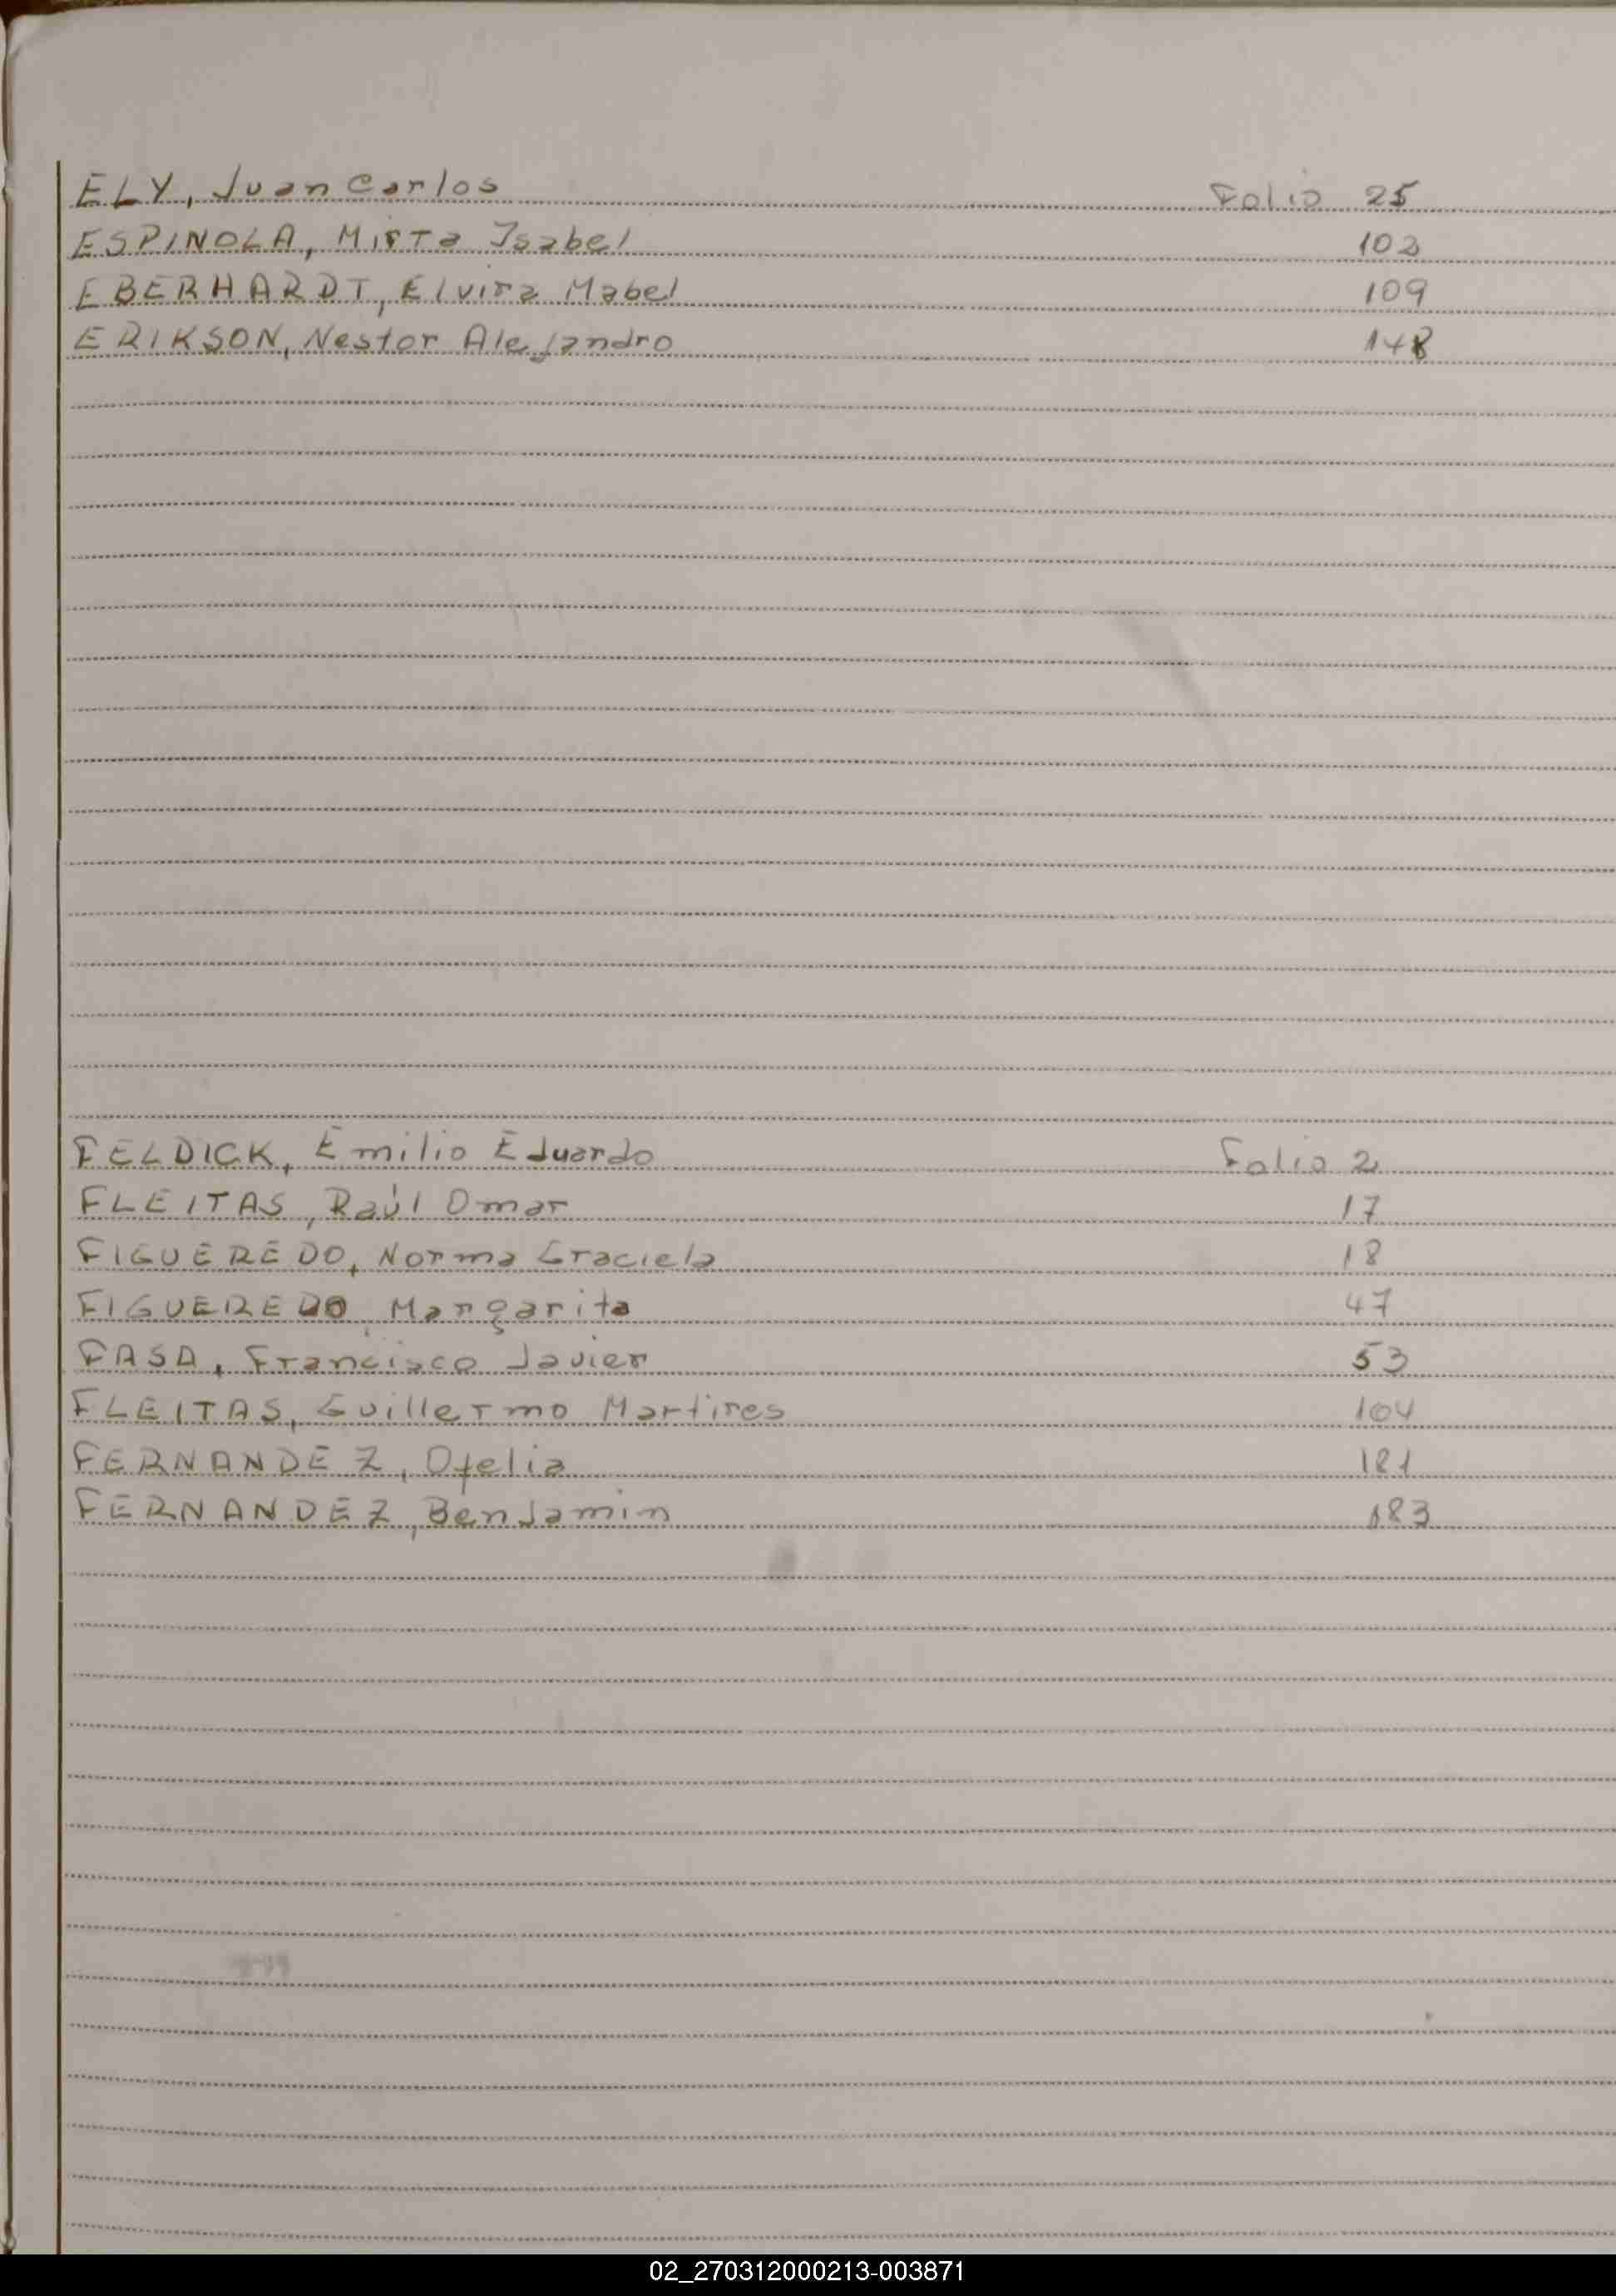 ELY, Juan Carlos Folio 25
ESPINOLA, Mirta Isabel 102
EBERHARDT, Elvira Mabel 109
ERIKSON, Nestor Alejandro 148
FELDICK, Emilio Eduardo Folio 2
FLEITAS, Raúl Omar 17
FIGUEREDO, Norma Graciela 18
FIGUEREDO, Margarita 47
FASA, Francisco Javier 53
FLEITAS, Guillermo Martires 104
FERNANDEZ, Ofelia 181
FERNANDEZ, Benjamin 183
02_270312000213-003871